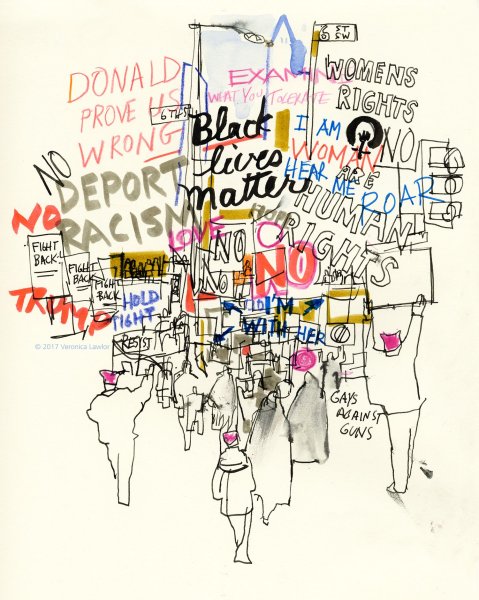 6 ST SW
DONALD
PROVE US
WRONG
EXAMINE
WHAT YOU TOLERATE
WOMENS
RIGHTS
ARE
HUMAN
RIGHTS
6TH ST
Black
lives
matter
I AM
WOMAN
HEAR ME
ROAR
NO
NO
DEPORT
RACISM
NO
LOVE
NO
NO
NO
FIGHT
BACK
FIGHT
BACK
FIGHT
BACK
TRUMP
HOLD
TIGHT
I'M
WITH HER
RESIST
© 2017 Veronica Lawlor
GAYS
AGAINST
GUNS